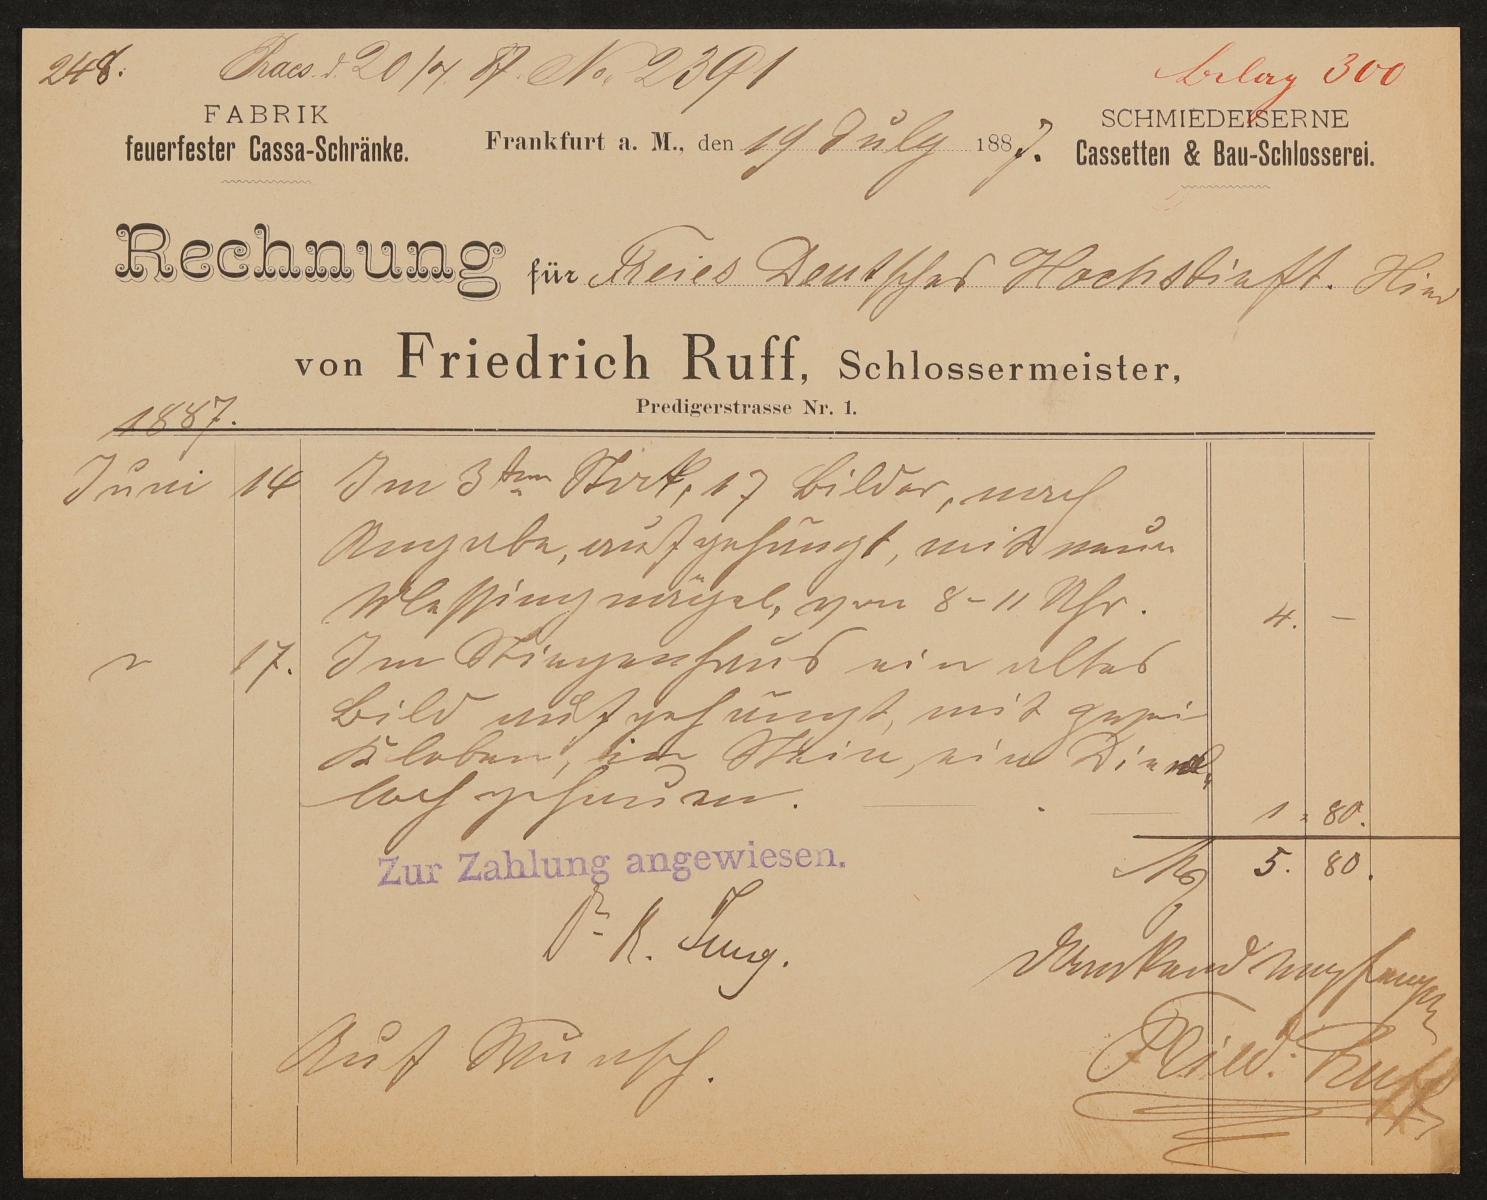 248.
Praes. d. 20/7. 87. No. 2391
belag 300
FABRIK
feuerfester Cassa-Schränke.
Frankfurt a. M., den 19 July 1887.
SCHMIEDEISERNE
Cassetten & Bau-Schlosserei.
Rechnung für Freies Deutsches Hochstieft. Hier
von Friedrich Ruff, Schlossermeister,
Predigerstrasse Nr. 1.
1887.
Juni 14 Im 3ten Stock, 17 Bilder, nach
Angabe, aufgehängt, mit neuen
Messingnägel, von 8-11 Uhr. 4. —
" 17. Im Stiegenhaus ein altes
Bild aufgehängt, mit zwei
Kloben, in Stein, ein
loch gehauen. 1 " 80.
M 5. 80.
Zur Zahlung angewiesen.
Dr K. Jung.
Dankend empfangen
Auf Wunsch.
Fried. Ruff